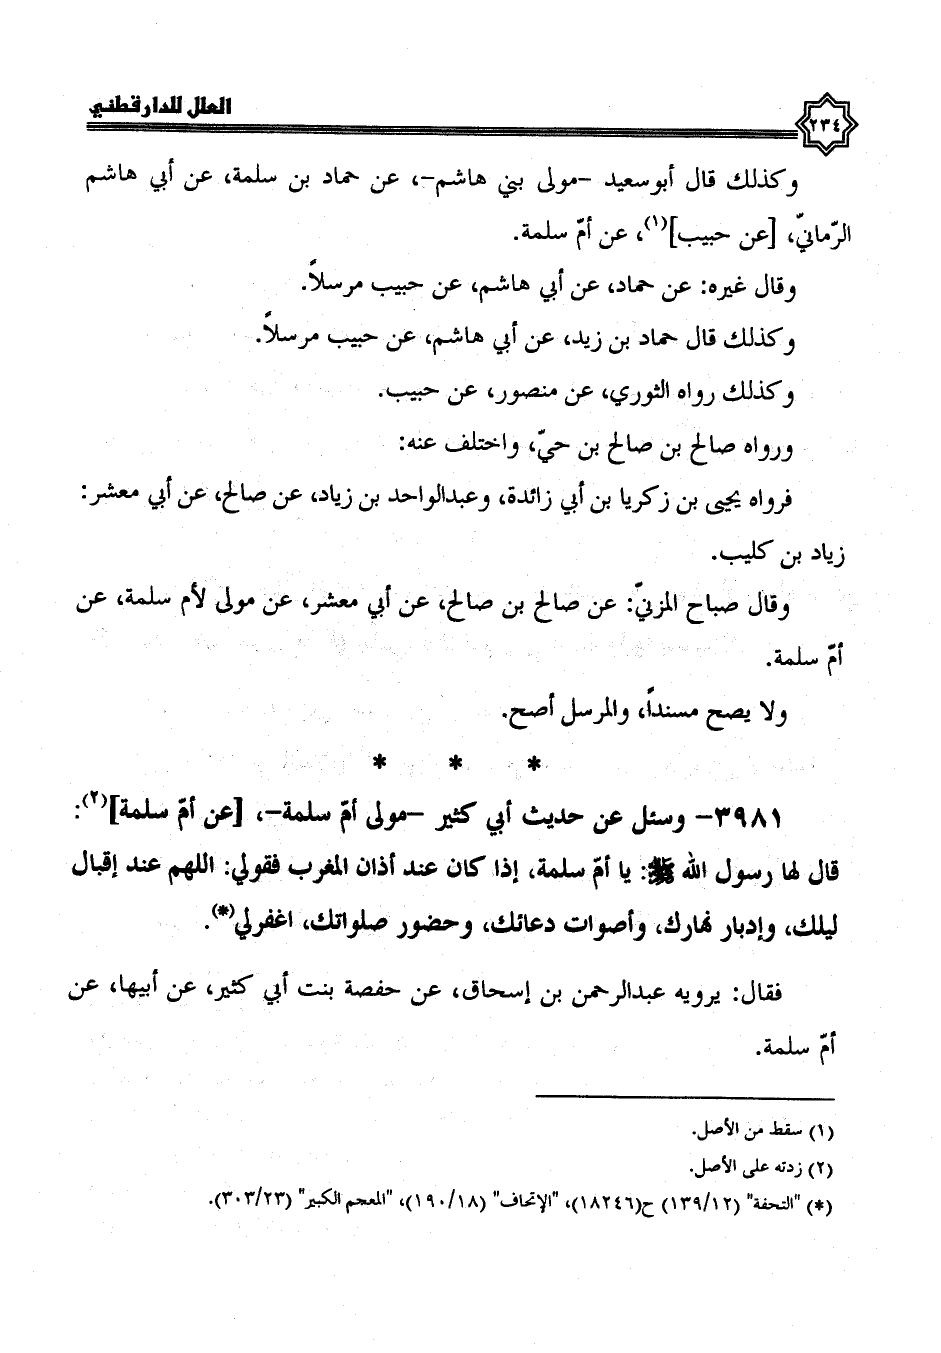 العلل للدارقطني
٢٣٤
وكذلك قال أبوسعيد –مولى بني هاشم–، عن حماد بن سلمة، عن أبي هاشم
الرّمانيّ، [عن حبيب](١)، عن أمّ سلمة.
وقال غيره: عن حماد، عن أبي هاشم، عن حبيب مرسلاً.
وكذلك قال حماد بن زيد، عن أبي هاشم، عن حبيب مرسلاً.
وكذلك رواه الثوري، عن منصور، عن حبيب.
ورواه صالح بن صالح بن حيّ، واختلف عنه:
فرواه يحيى بن زكريا بن أبي زائدة، وعبدالواحد بن زياد، عن صالح، عن أبي معشر:
زياد بن كليب.
وقال صباح المزنيّ: عن صالح بن صالح، عن أبي معشر، عن مولى لأم سلمة، عن
أمّ سلمة.
ولا يصح مسنداً، والمرسل أصح.
* * *
٣٩٨١– وسئل عن حديث أبي كثير –مولى أمّ سلمة–، [عن أمّ سلمة](٢):
قال لها رسول الله ﷺ: يا أمّ سلمة، إذا كان عند أذان المغرب فقولي: اللهم عند إقبال
ليلك، وإدبار نهارك، وأصوات دعائك، وحضور صلواتك، اغفرلي(*).
فقال: يرويه عبدالرحمن بن إسحاق، عن حفصة بنت أبي كثير، عن أبيها، عن
أمّ سلمة.
(١) سقط من الأصل.
(٢) زدته على الأصل.
(*) "التحفة" (١٣٩/١٢) ح(١٨٢٤٦)، "الإتحاف" (١٩٠/١٨)، "المعجم الكبير" (٣٠٣/٢٣).